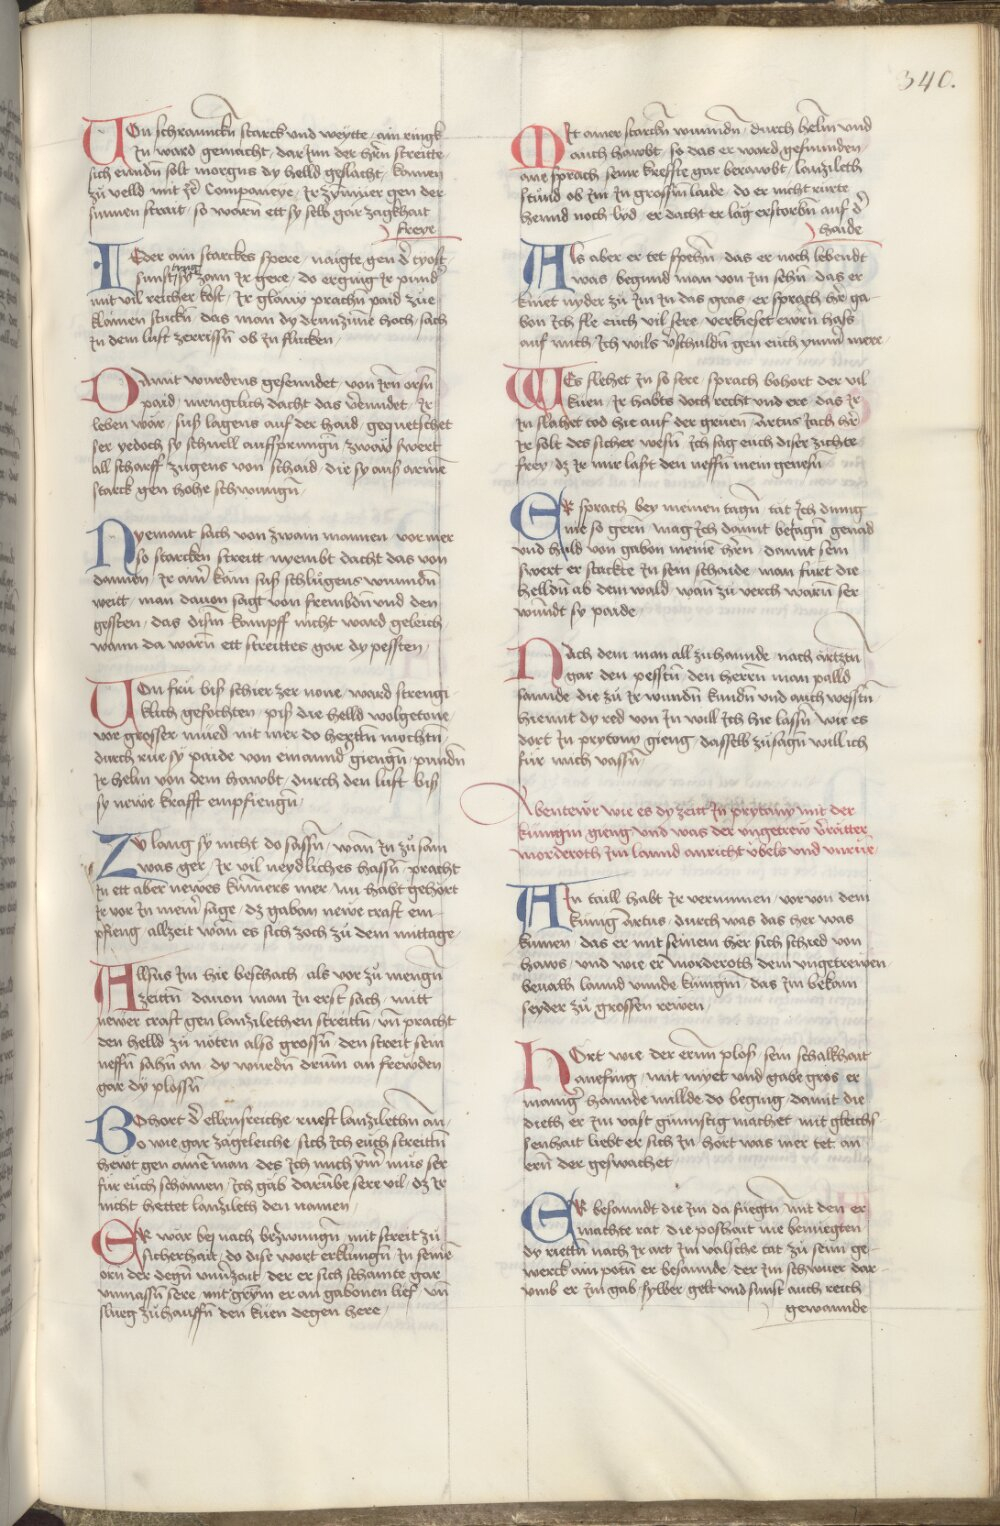 340.
Von schrannckn̄ starck vnd weytte / ain ringk
In ward gemacht / dar Inn der hern̄ streitte /
sich enndn̄ solt morgens dy helld geslacht / kamen
zů velld mit Ir Companeye / Ir zymier gen der
sunnen strait / so warn̄ ett sy selb gar zagkhait
freye
IEder ain starckes spere / naigte gen d' tyost
sunst sy zam Ir gere / do erging Ir pund'
mit vil reicher kost / Ir glavin prachn̄ paid zue
klainen stuckn̄ das man dy drunzune hoch / sach
In dem lufft zerrissn̄ ob In flucken /
Damit wurdens gesenndet / von Irn̄ orsn̄
paid / menigclich dacht das v'enndet / Ir
leben wär / suss lagens auf der haid / gequetschet
ser yedoch sy schnell auffsprungn̄ / zwaÿ swert
all scharff zugens von schaid / die sy auss armē
starck gen hohe schwungn̄
Nyemant sach von zwain mannen / vor mer
so starckēn streitt / nyembt dacht das von
dannen / Ir ain' käm suss schlůgens wunndn̄
weitt / man dauon sagt von frembdn̄ vnd den
gessten / das dism̄ kampff nicht ward geleich
wann da warn̄ ett streittes gar dy pessten /
Von frů biss schier zer none / ward strengi
klich gefochten / piss die helld wolgetone
vor grosser mued nit mer do hertn̄ mochtn̄
durch rue sy paide von einannd' giengn̄ / punndn̄
Ir helm von dem hawbt / durch den lufft biss
sy newe krafft empfiengn̄
Zu lang sy nicht do sassn̄ / wann In zů sam
was ger / Ir vil neydliches hassn̄ / pracht
In ett aber newes kumers mer / nu habt gehört
Ir vor In mein' sage / dz gaban newe craft em-
pfieng / allzeit wan es sich zoch zů dem mittage /
Allsus Im hie beschach als vor zů mengn̄
zeittn̄ dauon man In erst sach / mitt
newer craft gen lanzilethen streittn̄ / vn̄ pracht
den helld zů nöten also grossn̄ / den streit sein
neffn̄ sahn̄ an / dy wurdn̄ drum̄ an frewden
gar dÿ plossn̄
Bohort d' ellensreiche / rueft lanzilethn̄ an /
o wie gar zägeleiche / sich Ich euch streittn̄
hewt gen aine man / des Ich mich ym̄' můs ser
für euch schamen / Ich gäb darūbe sere vil / dz Ir
nicht hettet lanzileth den namen /
Er wär bej nach bezwungn̄ / mit streit zů
sicherhait / do dise wort erklungn̄ / In seinē
orn̄ der degn̄ vnuerzait / der er sich schamte gar
vnmassn̄ sere / mit grym̄ er an gabonen lief / vn̄
slueg zůhauffn̄ den küen degen here /
Mit ainer starckn̄ wunndn̄ / durch helm̄ vnd
auch hawbt / so das er ward gefunnden /
ane sprach / seiner kreffte gar berawbt / lanzileth
stůnd ob Im In grossm̄ laide / do er nicht rürte
hennd noch lyd / er dacht er läg erstorbn̄ auf d'
haide
Als aber er tet spehn̄ / das er noch lebendt
was begund man von Im sehn̄ / das er
kniet nyder zů Im In das gras / er sprach her ga-
bon Ich fle euch vil sere / verkieset ewrn̄ hass
auf mich / Ich wils v'schuldn̄ gen euch ymm' mere /
Wes flehet In so sere / sprach bohort der vil
küen / Ir habts doch recht vnd ere / das Ir
In slahet tod hie auf der gruen / artus Iach her
Ir solt des sicher wesn̄ / Ich sag euch diser zichte
frey / dz Ir mir lasst den neffn̄ mein genesn̄
Er sprach bey meinen tagn̄ / tät Ich ding
nie so gern̄ / mag Ich damit beiagn̄ genad
vnd huld von gabon meine hern̄ / damit sein
swert er stackte In sein schaide / man fürt die
helldn̄ ab dem wald / wan zů verch warn̄ ser
wunndt sy paide
Nach dem man all zuhannde / nach ärtztn̄
gar den pesstn̄ / den herrn̄ man palld
sannde / die zů Ir wundn̄ kundn̄ vnd auch wesstn̄
hiemit dy red von In will Ich hie lassn̄ / wie es
dort In prytony gieng / dasselb zůsagn̄ will ich
für mich vassn̄
Abentewr wie es dy zeitt In prytony mit der
künigin gieng vnd was der vngetrew v'rätter
morderoth Im lannd anricht vbels vnd vnrüe /
Ain taill habt Ir vernumen / vor von dem
künig Artus / durch was das her was
kumen / das er mit seinem her sich schied von
haws / vnd wie er morderoth dem vngetrewen
beualh lannd vnnde künigin̄ / das Im bekam
seyder zů grossen rewen
Hort wie der ern̄ ploss / sein schalkhait
anefing / mit myet vnd gabe gros er
manig' hannde millde do beging / damit die
dieth er Im vast günnstig machet / mit gleichs-
senhait liebt er sich In / hort was mer tet an
ern̄ der geswachet
Er besanndt die Im da fuegtn̄ / mit den er
machte rat / die poshait nie benuegten
dy riettn̄ nach Ir art Im valsche tat / zů seim ge-
werck ain potn̄ er besannde / der Im schwuer dar-
vmb er Im gab / sylber gelt vnd sunst auch reich
gewannde